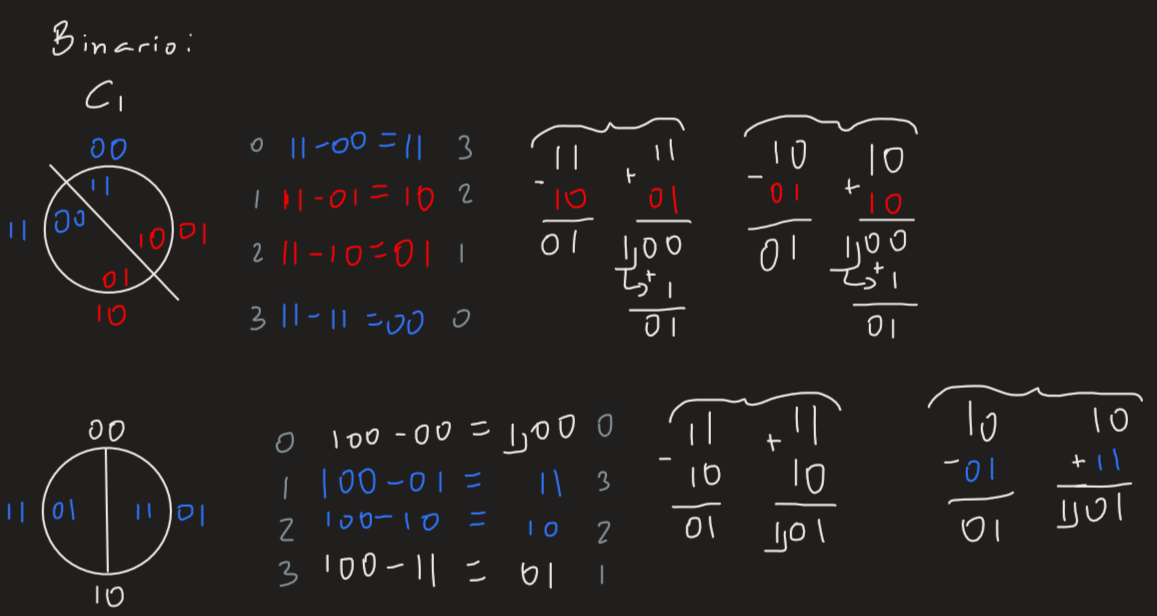 Binario:
C₁
00
11
11 00 10 01
01
10
0 11-00=11 3
1 11-01=10 2
2 11-10=01 1
3 11-11=00 0
11
- 10
01
11
+ 01
1,00
+ 1
01
10
- 01
01
10
+ 10
1,00
+ 1
01
00
11 01 11 01
10
0 100-00=1,00 0
1 100-01= 11 3
2 100-10= 10 2
3 100-11= 01 1
11
- 10
01
11
+ 10
1,01
10
- 01
01
10
+ 11
1,01